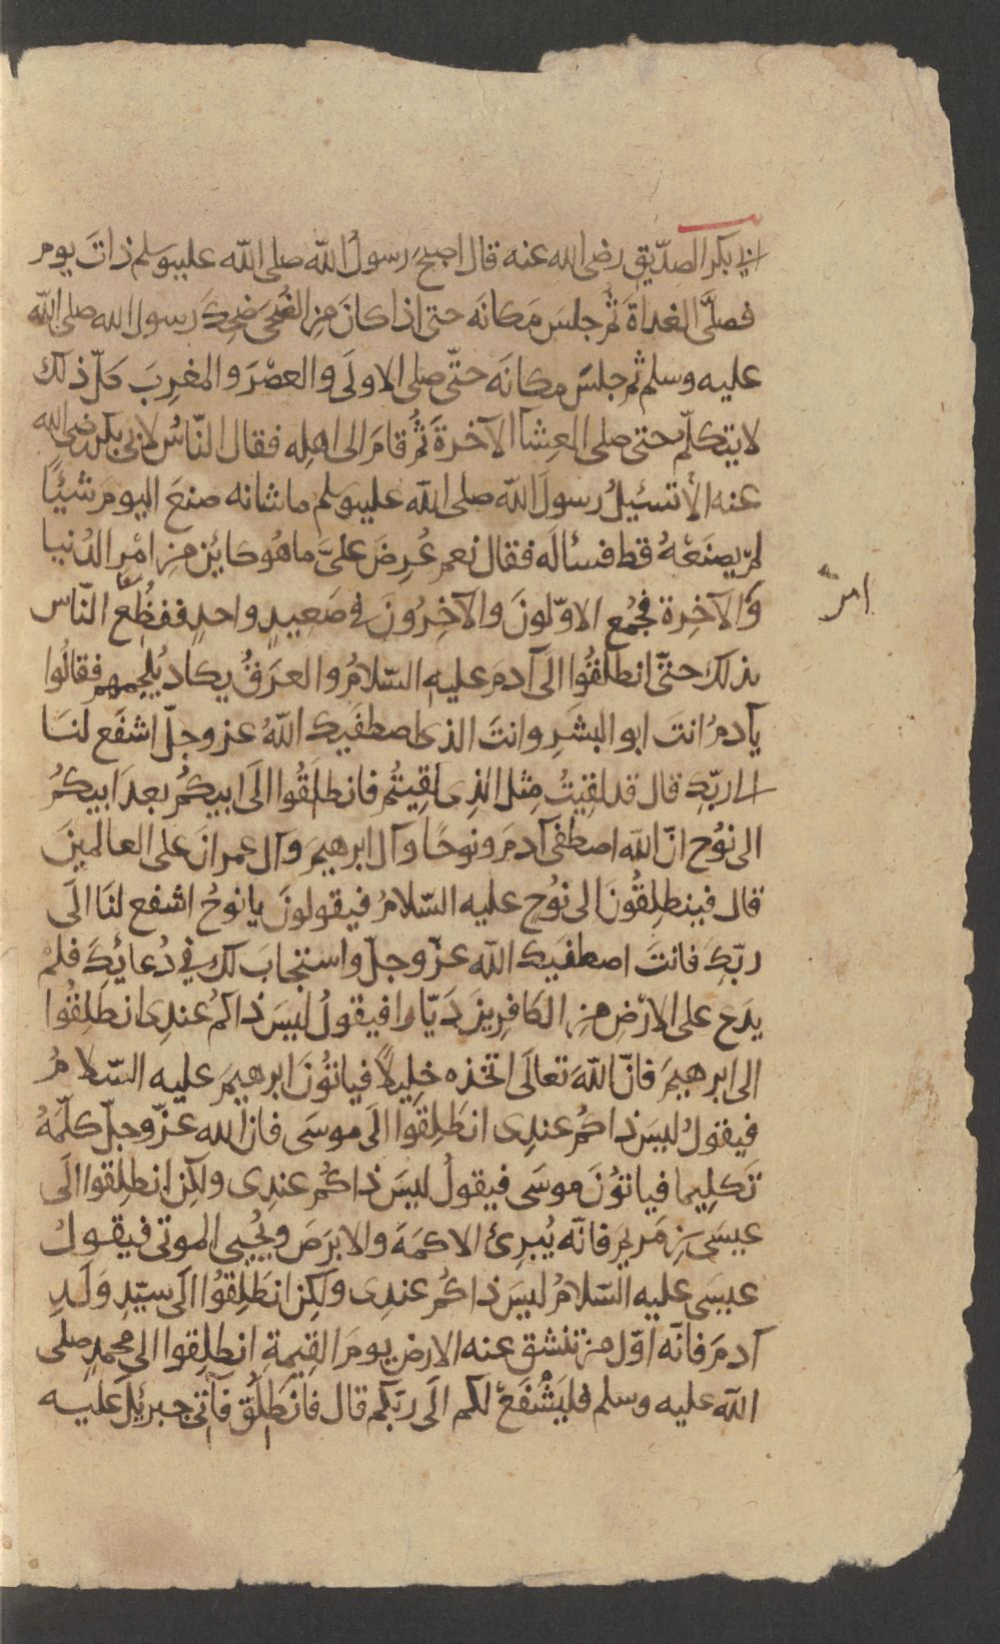 ابى بكر الصدّيق رضى الله عنه قال اصبح رسولُ الله صلى الله عليه وسلم ذاتَ يوم
فصلَّى الغداةَ ثم جلسَ مَكانَه حتى اذا كانَ مِن الضُحى ضحِكَ رسول الله صلى الله
عليه وسلم ثم جلسَ مكانَه حتّى صلى الاولَى والعصْرَ والمغرِبَ كلّ ذلك
لا يتكلّم حتى صلى العِشآ الآخرةَ ثُم قامَ الى اهلِه فقال النّاسُ لابى بكر رضى الله
عنه الَا تسئيلُ رسولَ الله صلى الله عليه وسلم ما شانه صنعَ اليومَ شيئًا
لم يصنَعْهُ قط فسألَه فقال نعم عُرِضَ علىَّ ما هُو كايِن مِن امْرِ الدُنيا
وَالآخِرة فجُمع الاوّلونَ والآخِرُونَ فى صَعيدٍ واحدٍ ففظُعَ النّاس
امر
بذلك حتّى انطلقُوا الى آدمَ عليه السّلامُ والعرَقُ يكاد يُلجِمهم فقالُوا
يآدمُ انتَ ابو البشرِ وانتَ الذى اصطفَيك اللهُ عز وجلّ اشفَع لنا
الى ربّك قال قد لقِيتُ مِثل الذِى لَقِيتُم فانطلَقُوا الَى ابيكُم بعدَ ابيكُم
الى نُوح انّ الله اصطفَى آدمَ ونوحًا وآلَ ابرهيمَ وَآل عمرانَ على العالمينَ
قال فينطلِقُونَ الى نُوحٍ عليه السّلامُ فيقولونَ يا نوحُ اشفع لنَا الَى
ربّكِ فانتَ اصطفَيك الله عزّ وجلّ واستجابَ لك فى دُعائِكَ فلمْ
يدَع على الارْضِ مِن الكافِرِينَ دَيّارا فيقولُ ليسَ ذاكم عندِى انطَلِقُوا
الى ابرهيمَ فانّ اللهَ تعالَى اتخذه خليلًا فياتُونَ ابرهيمَ عليه السّلامُ
فيقولُ ليسَ ذاكُم عندِى انطَلِقُوا الَى موسَى فان الله عزّ وجلّ كلّمَهُ
تَكلِيما فياتوُنَ موسَى فيقولُ ليسَ ذاكُم عندِى ولكِن انطلِقوا الَى
عيسَى بنِ مَريمَ فانّه يُبرِئ الاكمَهَ والابرَصَ ويُحيِى الموتى فيقولُ
عيسَى عليه السّلامُ ليسَ ذاكُم عندِى ولكِن انطَلِقُوا الَى سيّدِ وَلَدِ
آدمَ فانّه اوّل من تنشق عنه الارض يومَ القِيمةِ انطلِقوا الى محمدٍ صلى
الله عليه وسلم فليَشْفَعْ لكم الَى ربّكم قال فانطَلَقَ فأتَى جبرئيلَ عليه